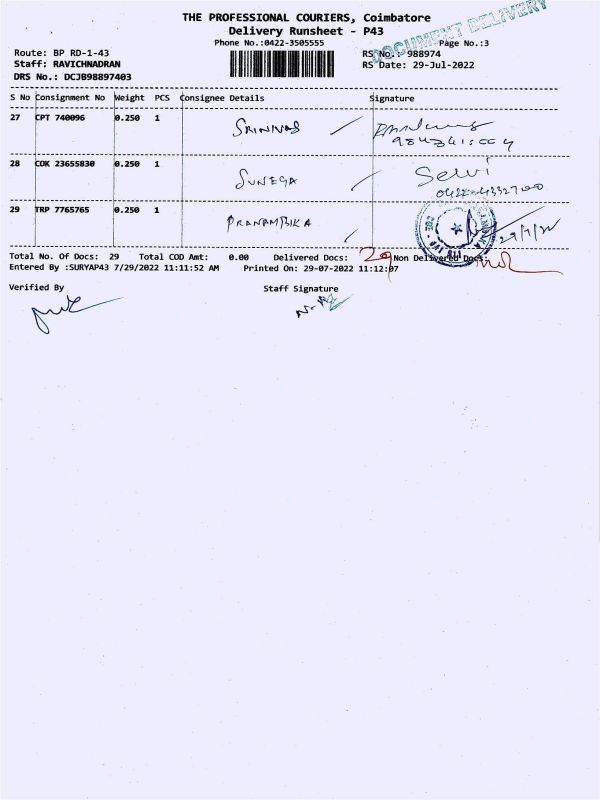 THE PROFESSIONAL COURIERS, Coimbatore
Delivery Runsheet - P43
DOCUMENT DELIVERY
Phone No.:0422-3505555 Page No.:3
Route: BP RD-1-43 RS No.: 988974
Staff: RAVICHNADRAN RS Date: 29-Jul-2022
DRS No.: DCJB98897403
S No Consignment No Weight PCS Consignee Details Signature
27 CPT 740096 0.250 1 SRINIVAS
28 COK 23655830 0.250 1 SUNEGA Selvi
29 TRP 7765765 0.250 1 PRANAMBIKA
29/7/22
Total No. Of Docs: 29 Total COD Amt: 0.00 Delivered Docs: 29 Non Delivered Docs:
Entered By :SURYAP43 7/29/2022 11:11:52 AM Printed On: 29-07-2022 11:12:07
Verified By Staff Signature